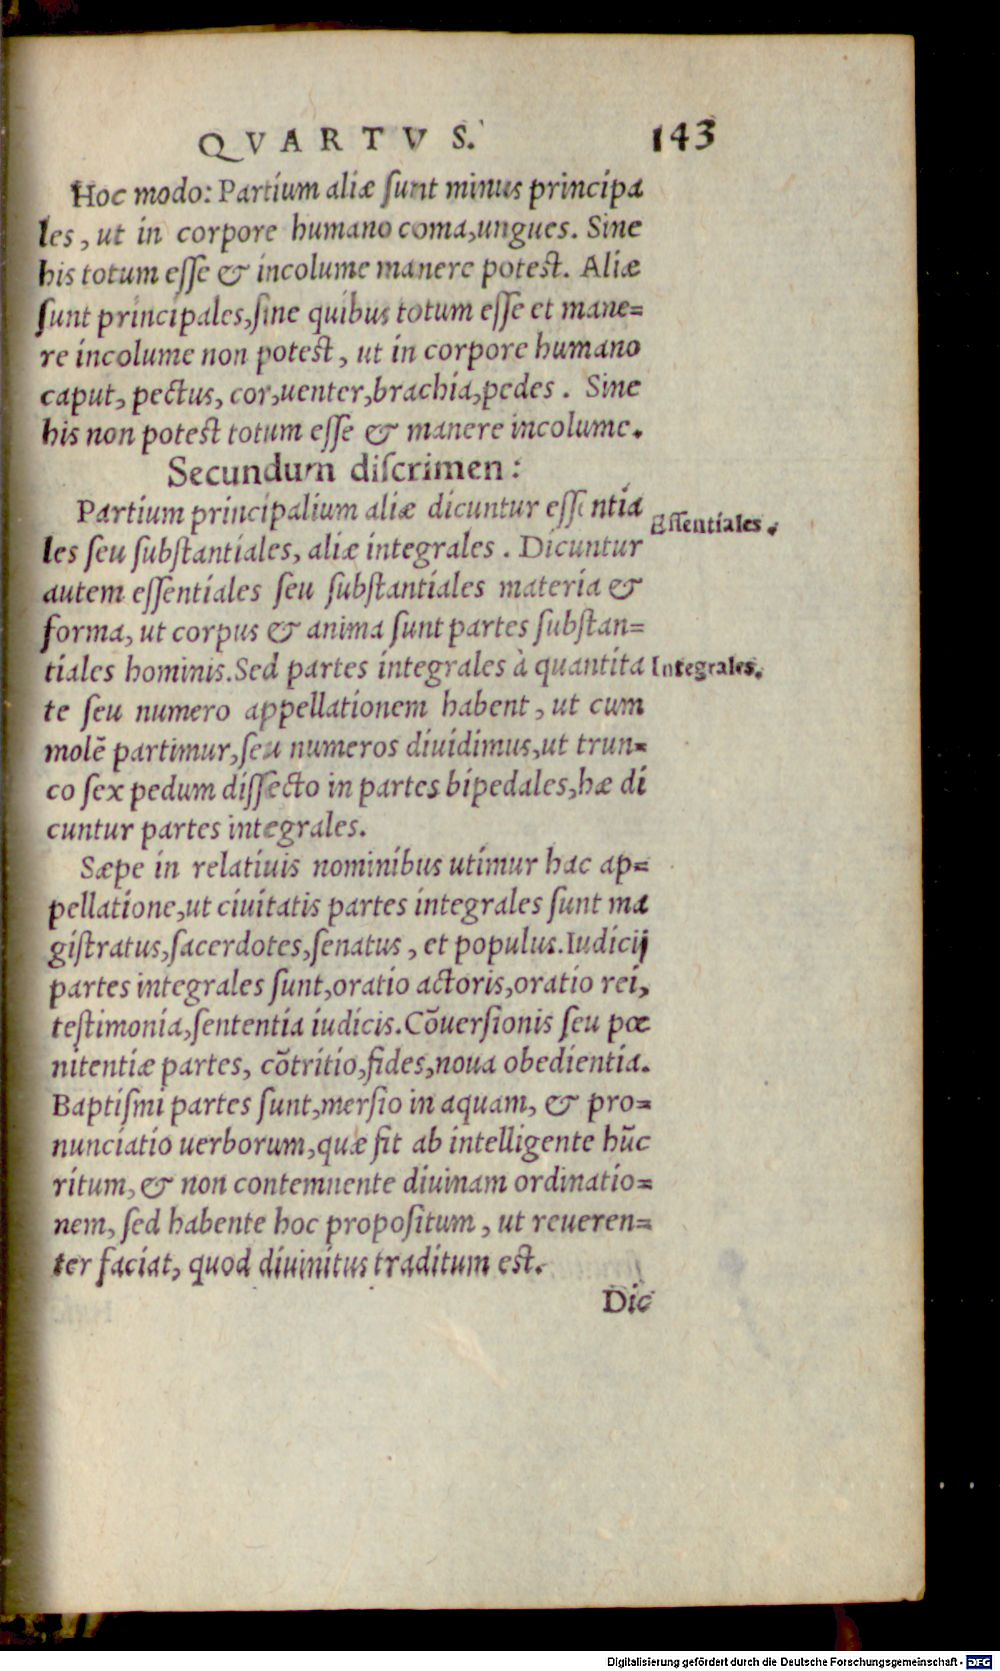 QVARTVS. 143
Hoc modo: Partium aliæ ſunt minus principa
les, ut in corpore humano coma, ungues. Sine
his totum eſſe & incolume manere poteſt. Aliæ
ſunt principales, ſine quibus totum eſſe et mane=
re incolume non poteſt, ut in corpore humano
caput, pectus, cor, uenter, brachia, pedes. Sine
his non poteſt totum eſſe & manere incolume.
Secundum diſcrimen:
Partium principalium aliæ dicuntur eſſentia
Eſſentiales.
les ſeu ſubſtantiales, aliæ integrales. Dicuntur
autem eſſentiales ſeu ſubſtantiales materia &
forma, ut corpus & anima ſunt partes ſubſtan=
tiales hominis. Sed partes integrales à quantita
Integrales.
te ſeu numero appellationem habent, ut cum
molē partimur, ſeu numeros diuidimus, ut trun=
co ſex pedum diſſecto in partes bipedales, hæ di
cuntur partes integrales.
Sæpe in relatiuis nominibus utimur hac ap=
pellatione, ut ciuitatis partes integrales ſunt ma
giſtratus, ſacerdotes, ſenatus, et populus. Iudicij
partes integrales ſunt, oratio actoris, oratio rei,
teſtimonia, ſententia iudicis. Cōuerſionis ſeu pœ
nitentiæ partes, cōtritio, fides, noua obedientia.
Baptiſmi partes ſunt, merſio in aquam, & pro=
nunciatio uerborum, quæ fit ab intelligente hūc
ritum, & non contemnente diuinam ordinatio=
nem, ſed habente hoc propoſitum, ut reueren=
ter faciat, quod diuinitus traditum eſt.
Dic
Digitalisierung gefördert durch die Deutsche Forschungsgemeinschaft - DFG